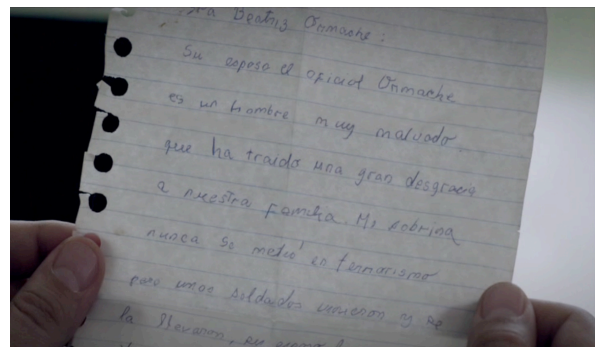 Sra Beatriz Ormache:
Su esposo el oficial Ormache
es un hombre muy malvado
que ha traido una gran desgracia
a nuestra familia. Mi sobrina
nunca se metió en terrorismo
pero unos soldados vinieron y se
la llevaron,